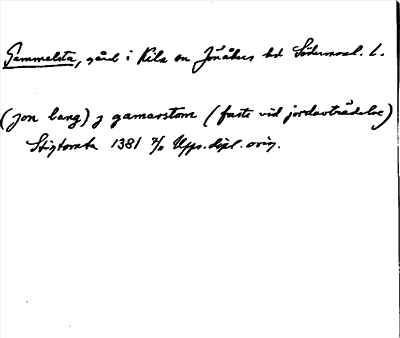 Gammelsta, gård i Kila sn Jönåkers hd Södermanl. l.
(jon lang) j gamarstom (faste vid jordaöträdelse)
Stigtomta 1381 7/2 Upps. dipl. orig.